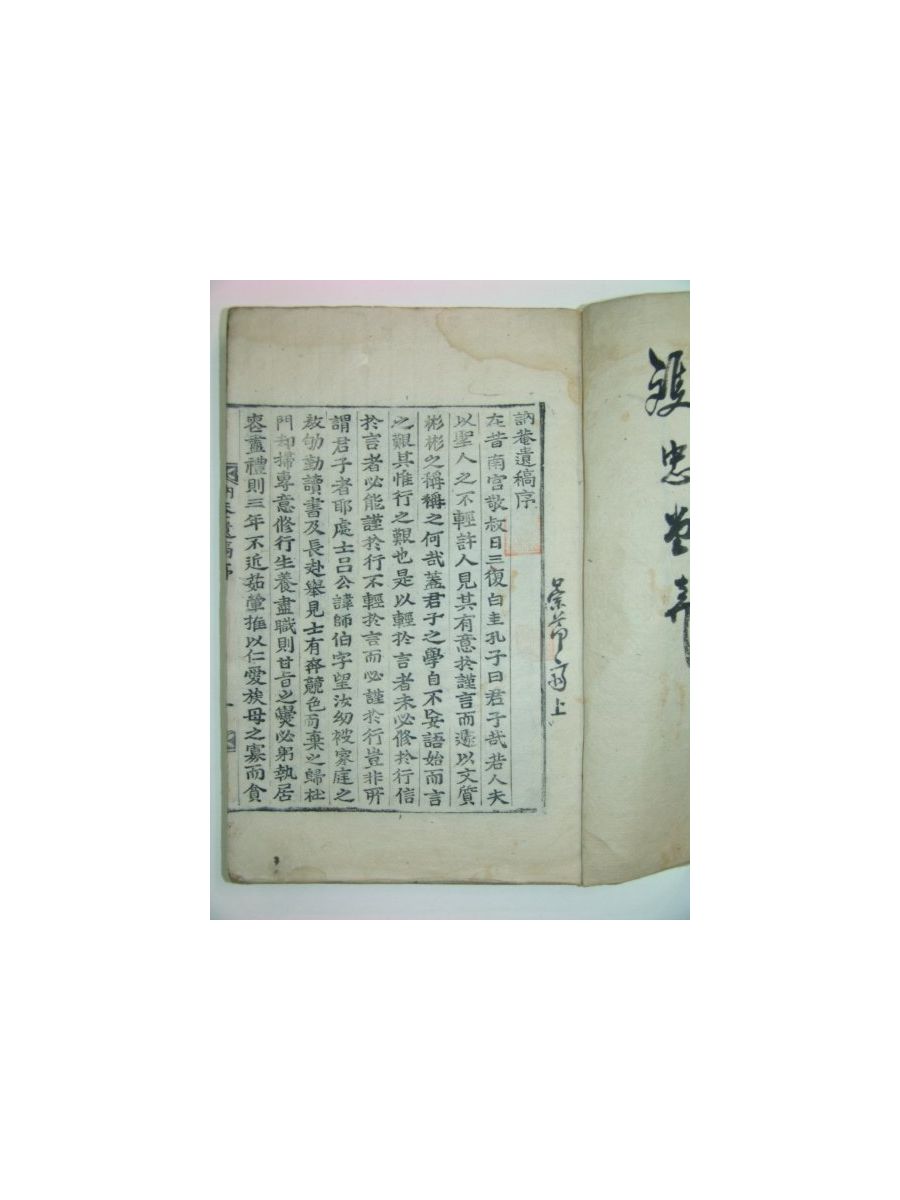 忠堂
上
訥菴遺稿序
在昔南宮敬叔日三復白圭孔子曰君子哉若人夫
以聖人之不輕許人見其有意於謹言而遽以文質
彬彬之稱稱之何哉蓋君子之學自不妄語始而言
之艱其惟行之艱也是以輕於言者未必修於行信
於言者必能謹於行不輕於言而必謹於行豈非所
謂君子者耶處士呂公諱師伯字望汝幼被家庭之
教劬勤讀書及長赴舉見士有奔競色而棄之歸杜
門却掃專意修行生養盡職則甘旨之爨必躬執居
喪盡禮則三年不近茹葷推以仁愛族母之寡而貧
訥菴遺稿序 一